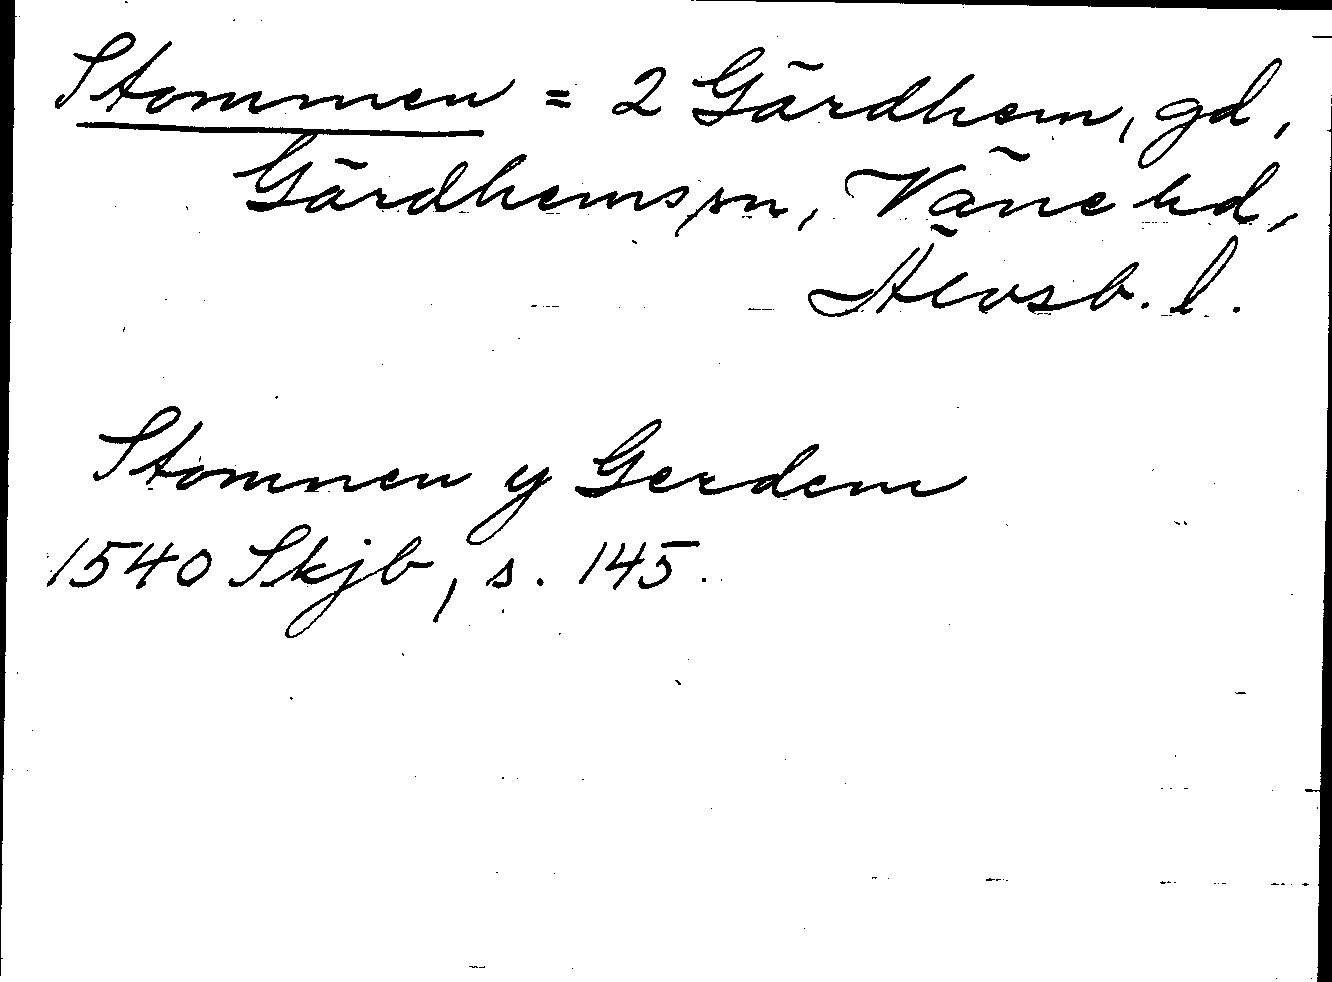 Stommen = 2 Gärdhem, gd,
Gärdhems sn, Väne hd,
Älvsb. l.
Stomnen y Gerdem
1540 Skjb, s. 145.